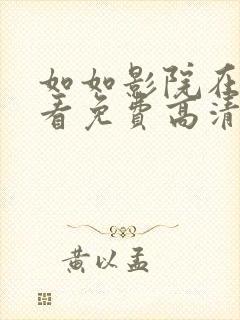 如如影院在
看免费高清
黄以孟